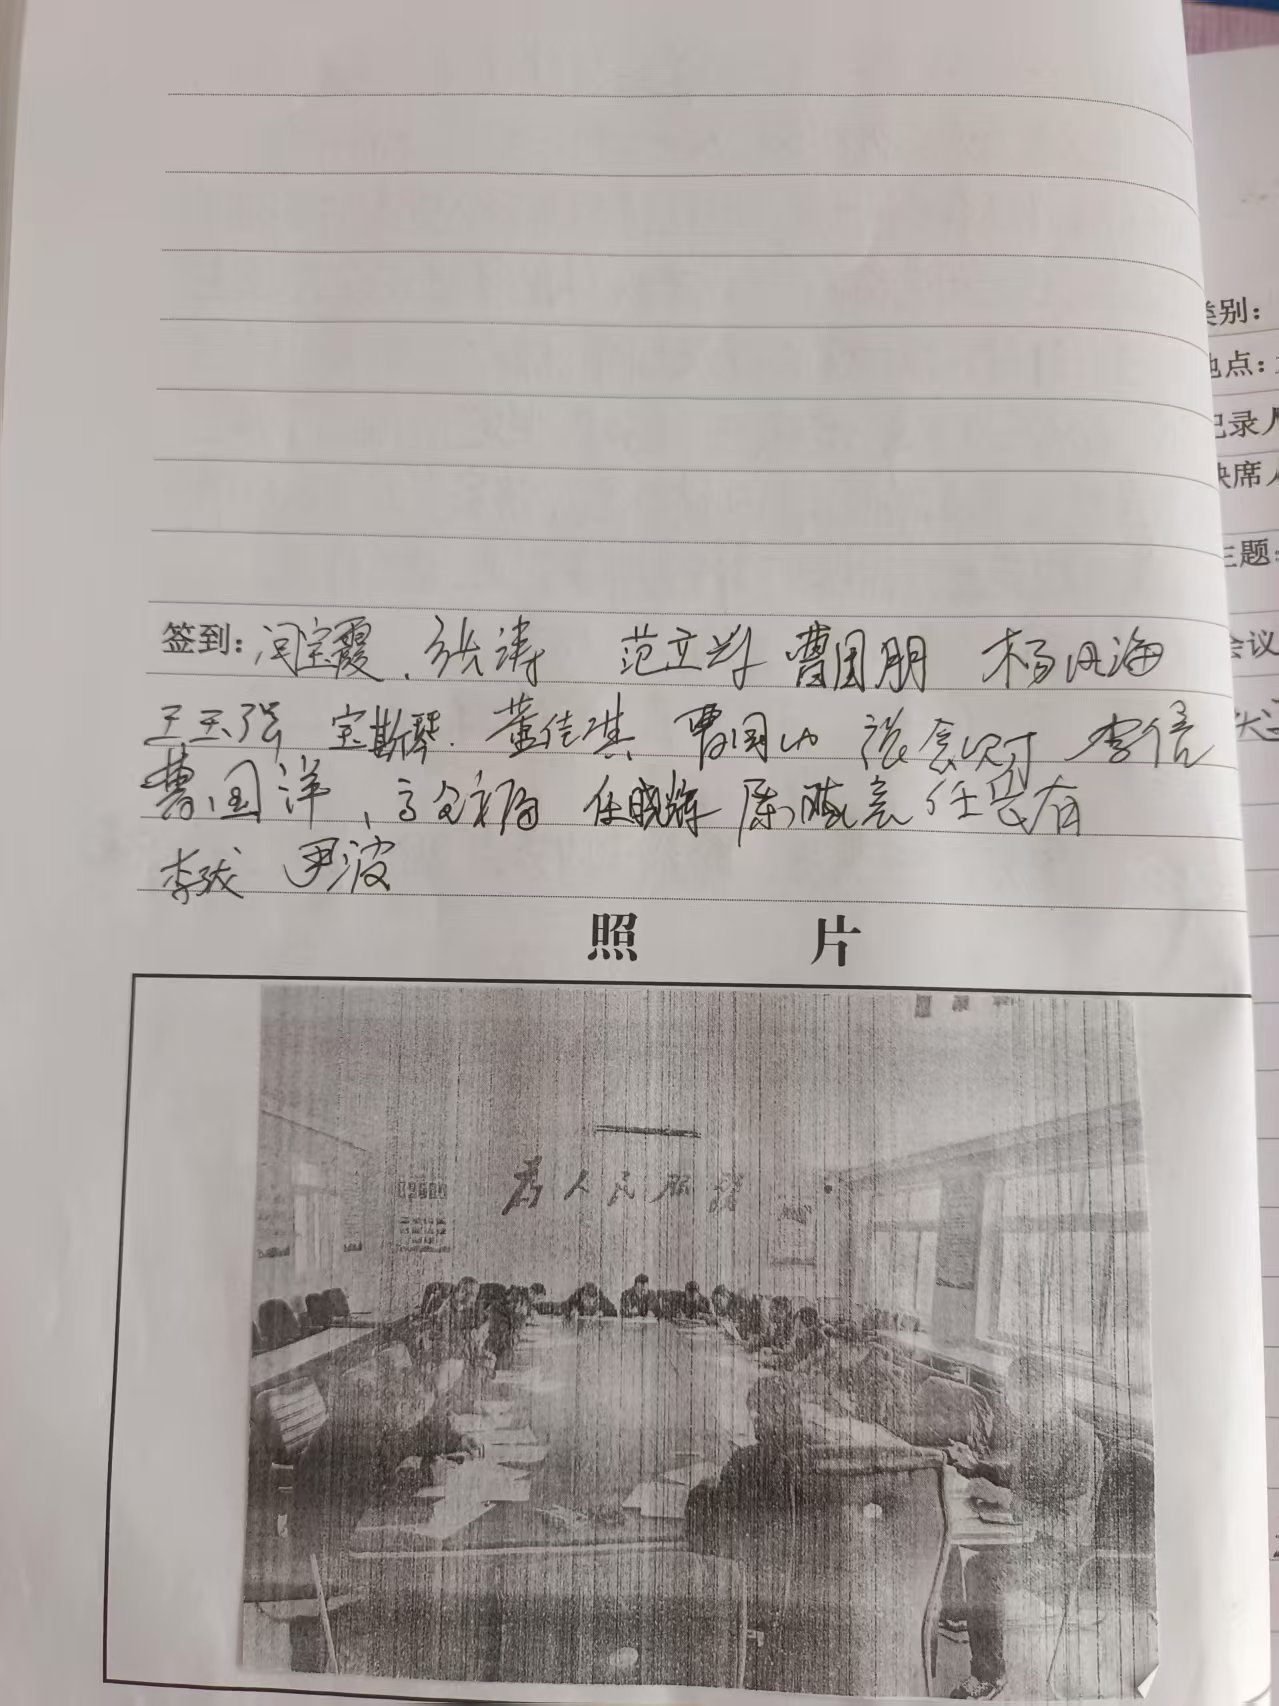 类别：
地点：
记录人
缺席人
主题：
会议
签到：闫宝霞、张涛 范立新 曹国朋 杨丹海
王玉强 宝斯琴 董佳琪 曹国山 张会财 李信
曹国洋、高 任晓辉 陈 亮 任 有
李 尹波
照 片
为人民服务